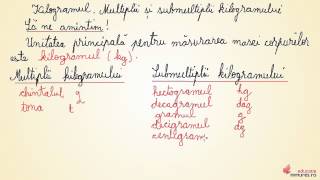 Kilogramul. Multiplii și submultiplii kilogramului
Să ne amintim!
Unitatea principală pentru măsurarea masei corpurilor
este kilogramul (kg).
Multiplii kilogramului
chintalul q
tona t
Submultiplii kilogramului
hectogramul hg
decagramul dag
gramul g
decigramul dg
centigram
educatie